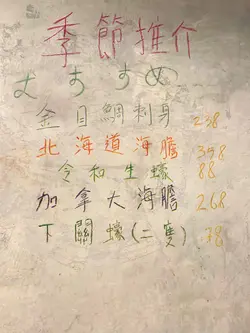 季節推介
おすすめ
金目鯛刺身 238
北海道海膽 398
令和生蠔 88
加拿大海膽 268
下關蠔(二隻) 78